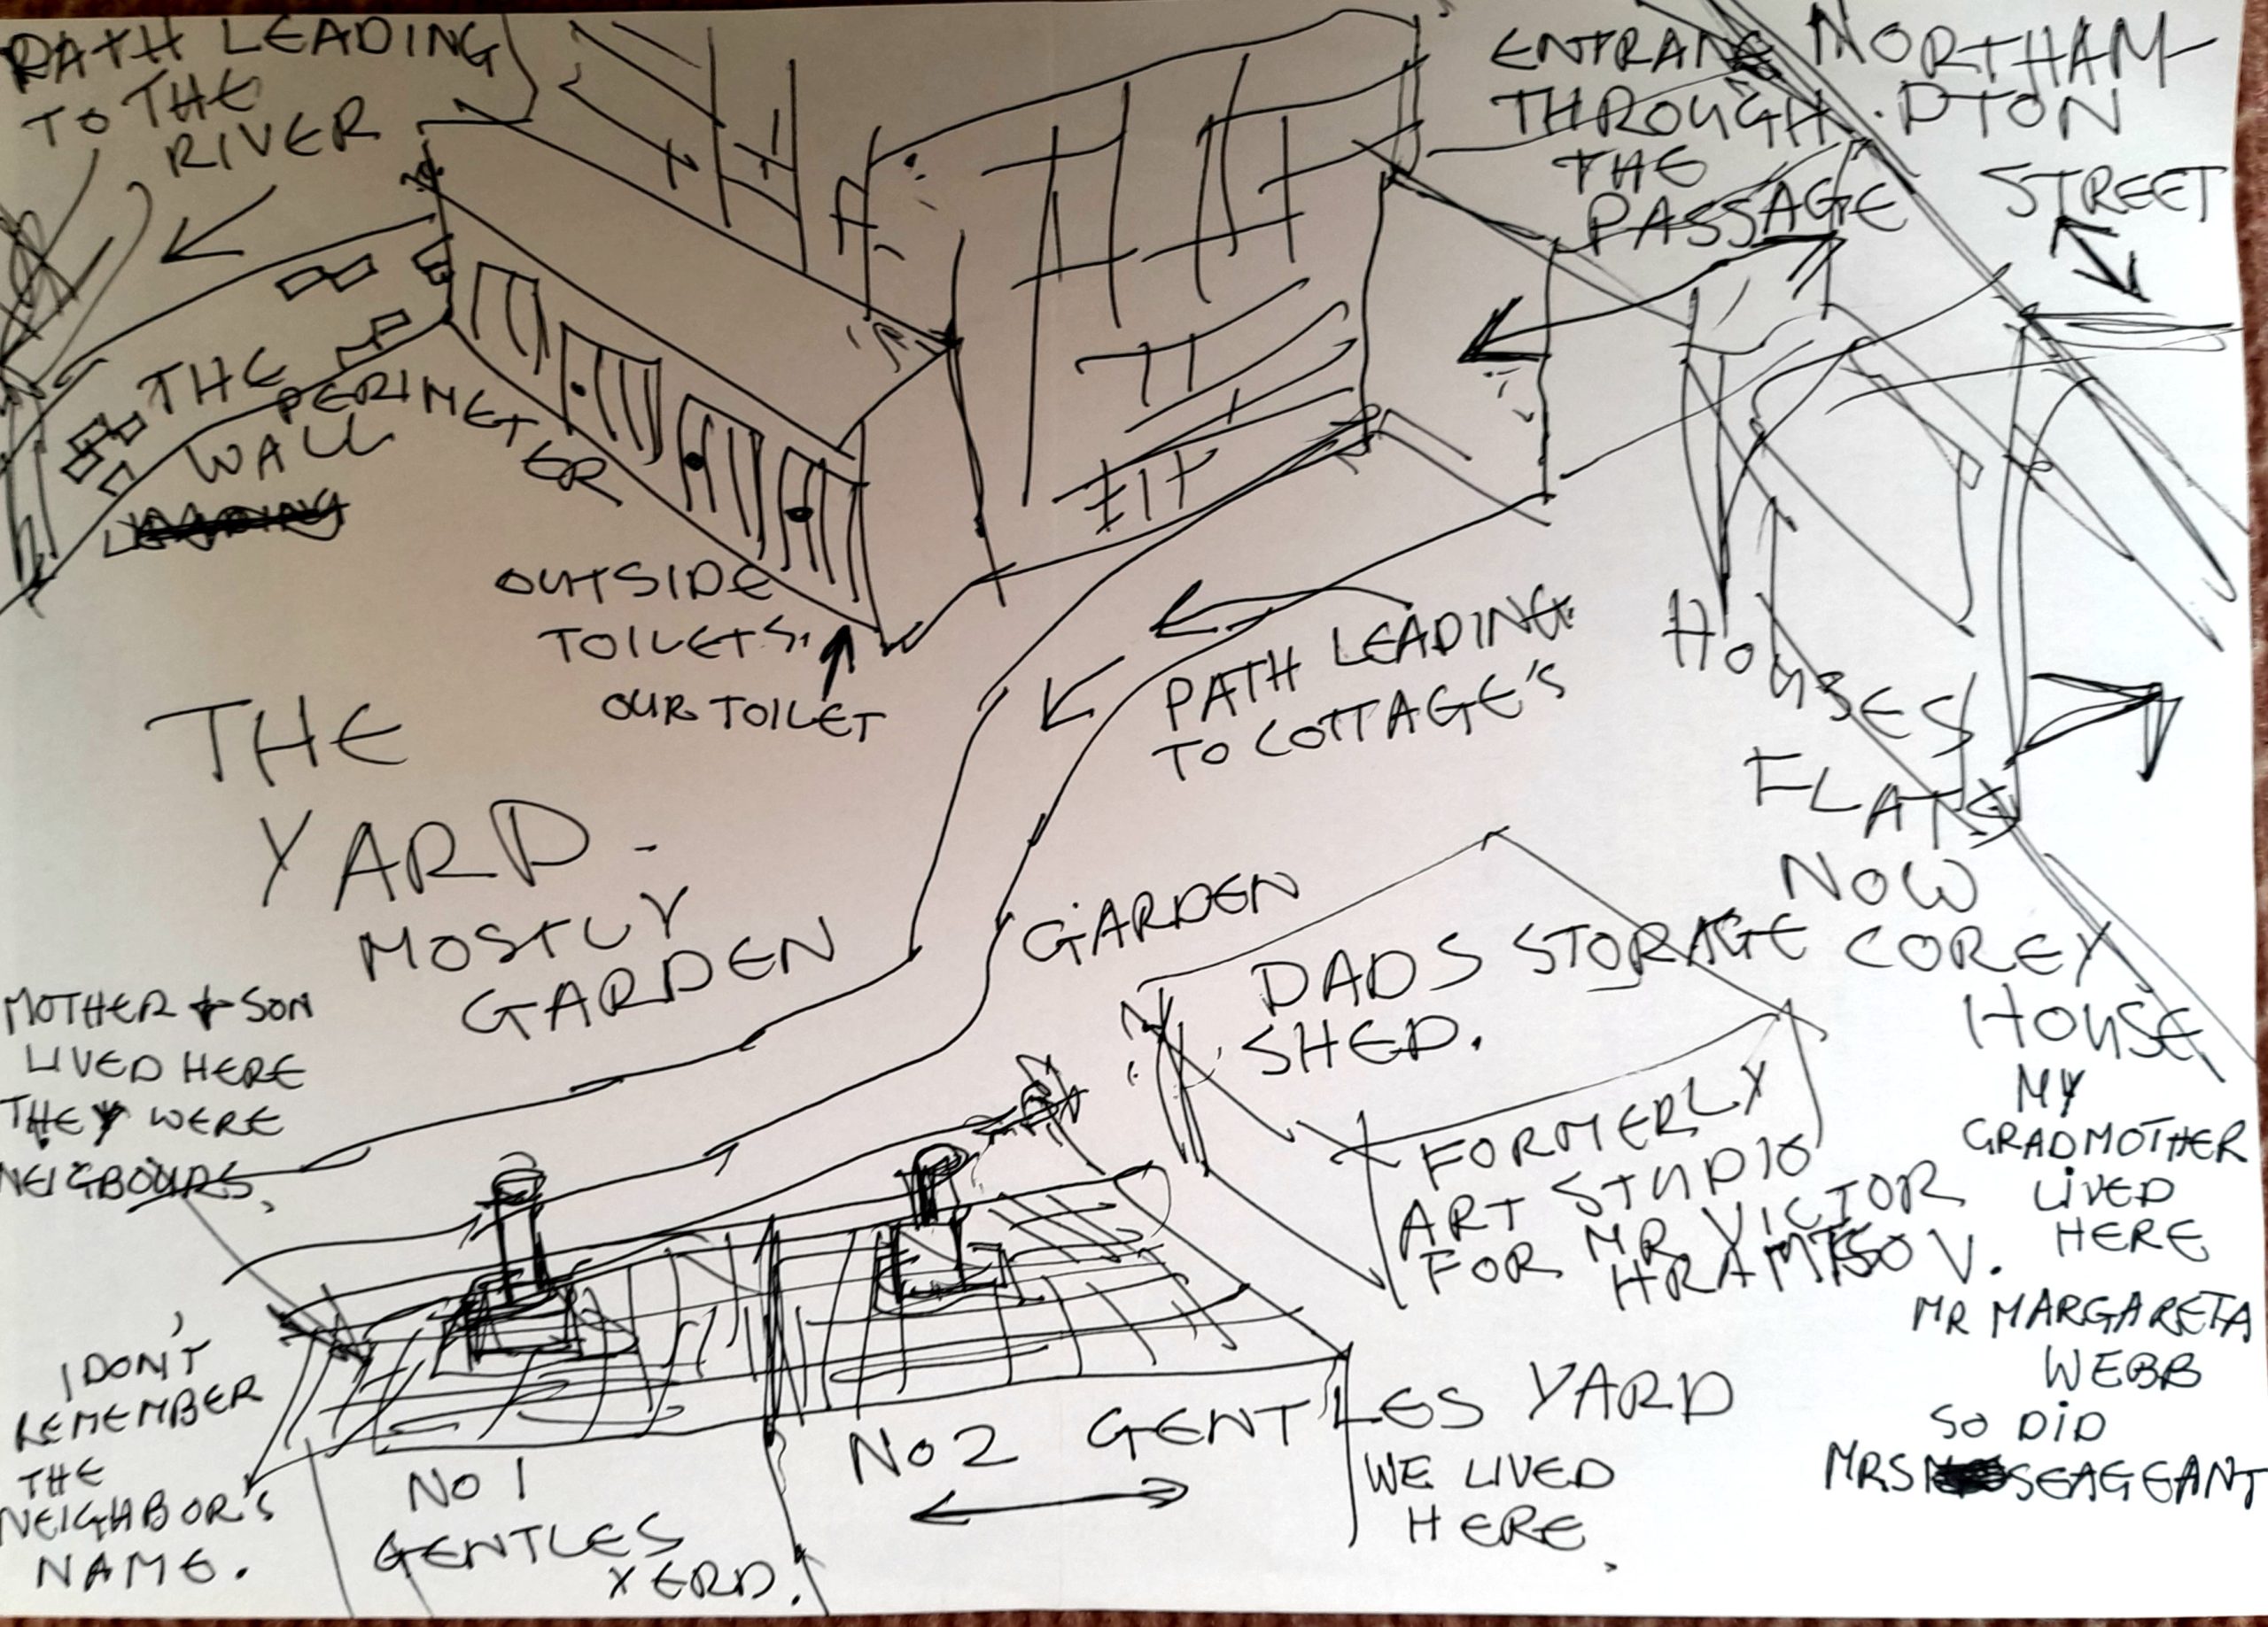 PATH LEADING
TO THE
RIVER
ENTRANE
THROUGH
THE
PASSAGE
NORTHAM-
PTON
STREET
THE
PERIMETER
WALL
OUTSIDE
TOILETS.
OUR TOILET
PATH LEADING
TO COTTAGE'S
HOUSES
FLATS
NOW
COREY
HOUSE
MY
GRADMOTHER
LIVED
HERE
MR MARGARETA
WEBB
SO DID
MRS SEAGEANT
THE
YARD.
MOSTLY
GARDEN
GARDEN
DADS STORAGE
SHED.
FORMERLY
ART STUDIO
FOR MR VICTOR
HRAMTSOV.
MOTHER + SON
LIVED HERE
THEY WERE
NEIGBOURS.
I DON'T
REMEMBER
THE
NEIGHBOR'S
NAME.
NO 1
GENTLES
YERD.
NO 2 GENTLES YARD
WE LIVED
HERE.